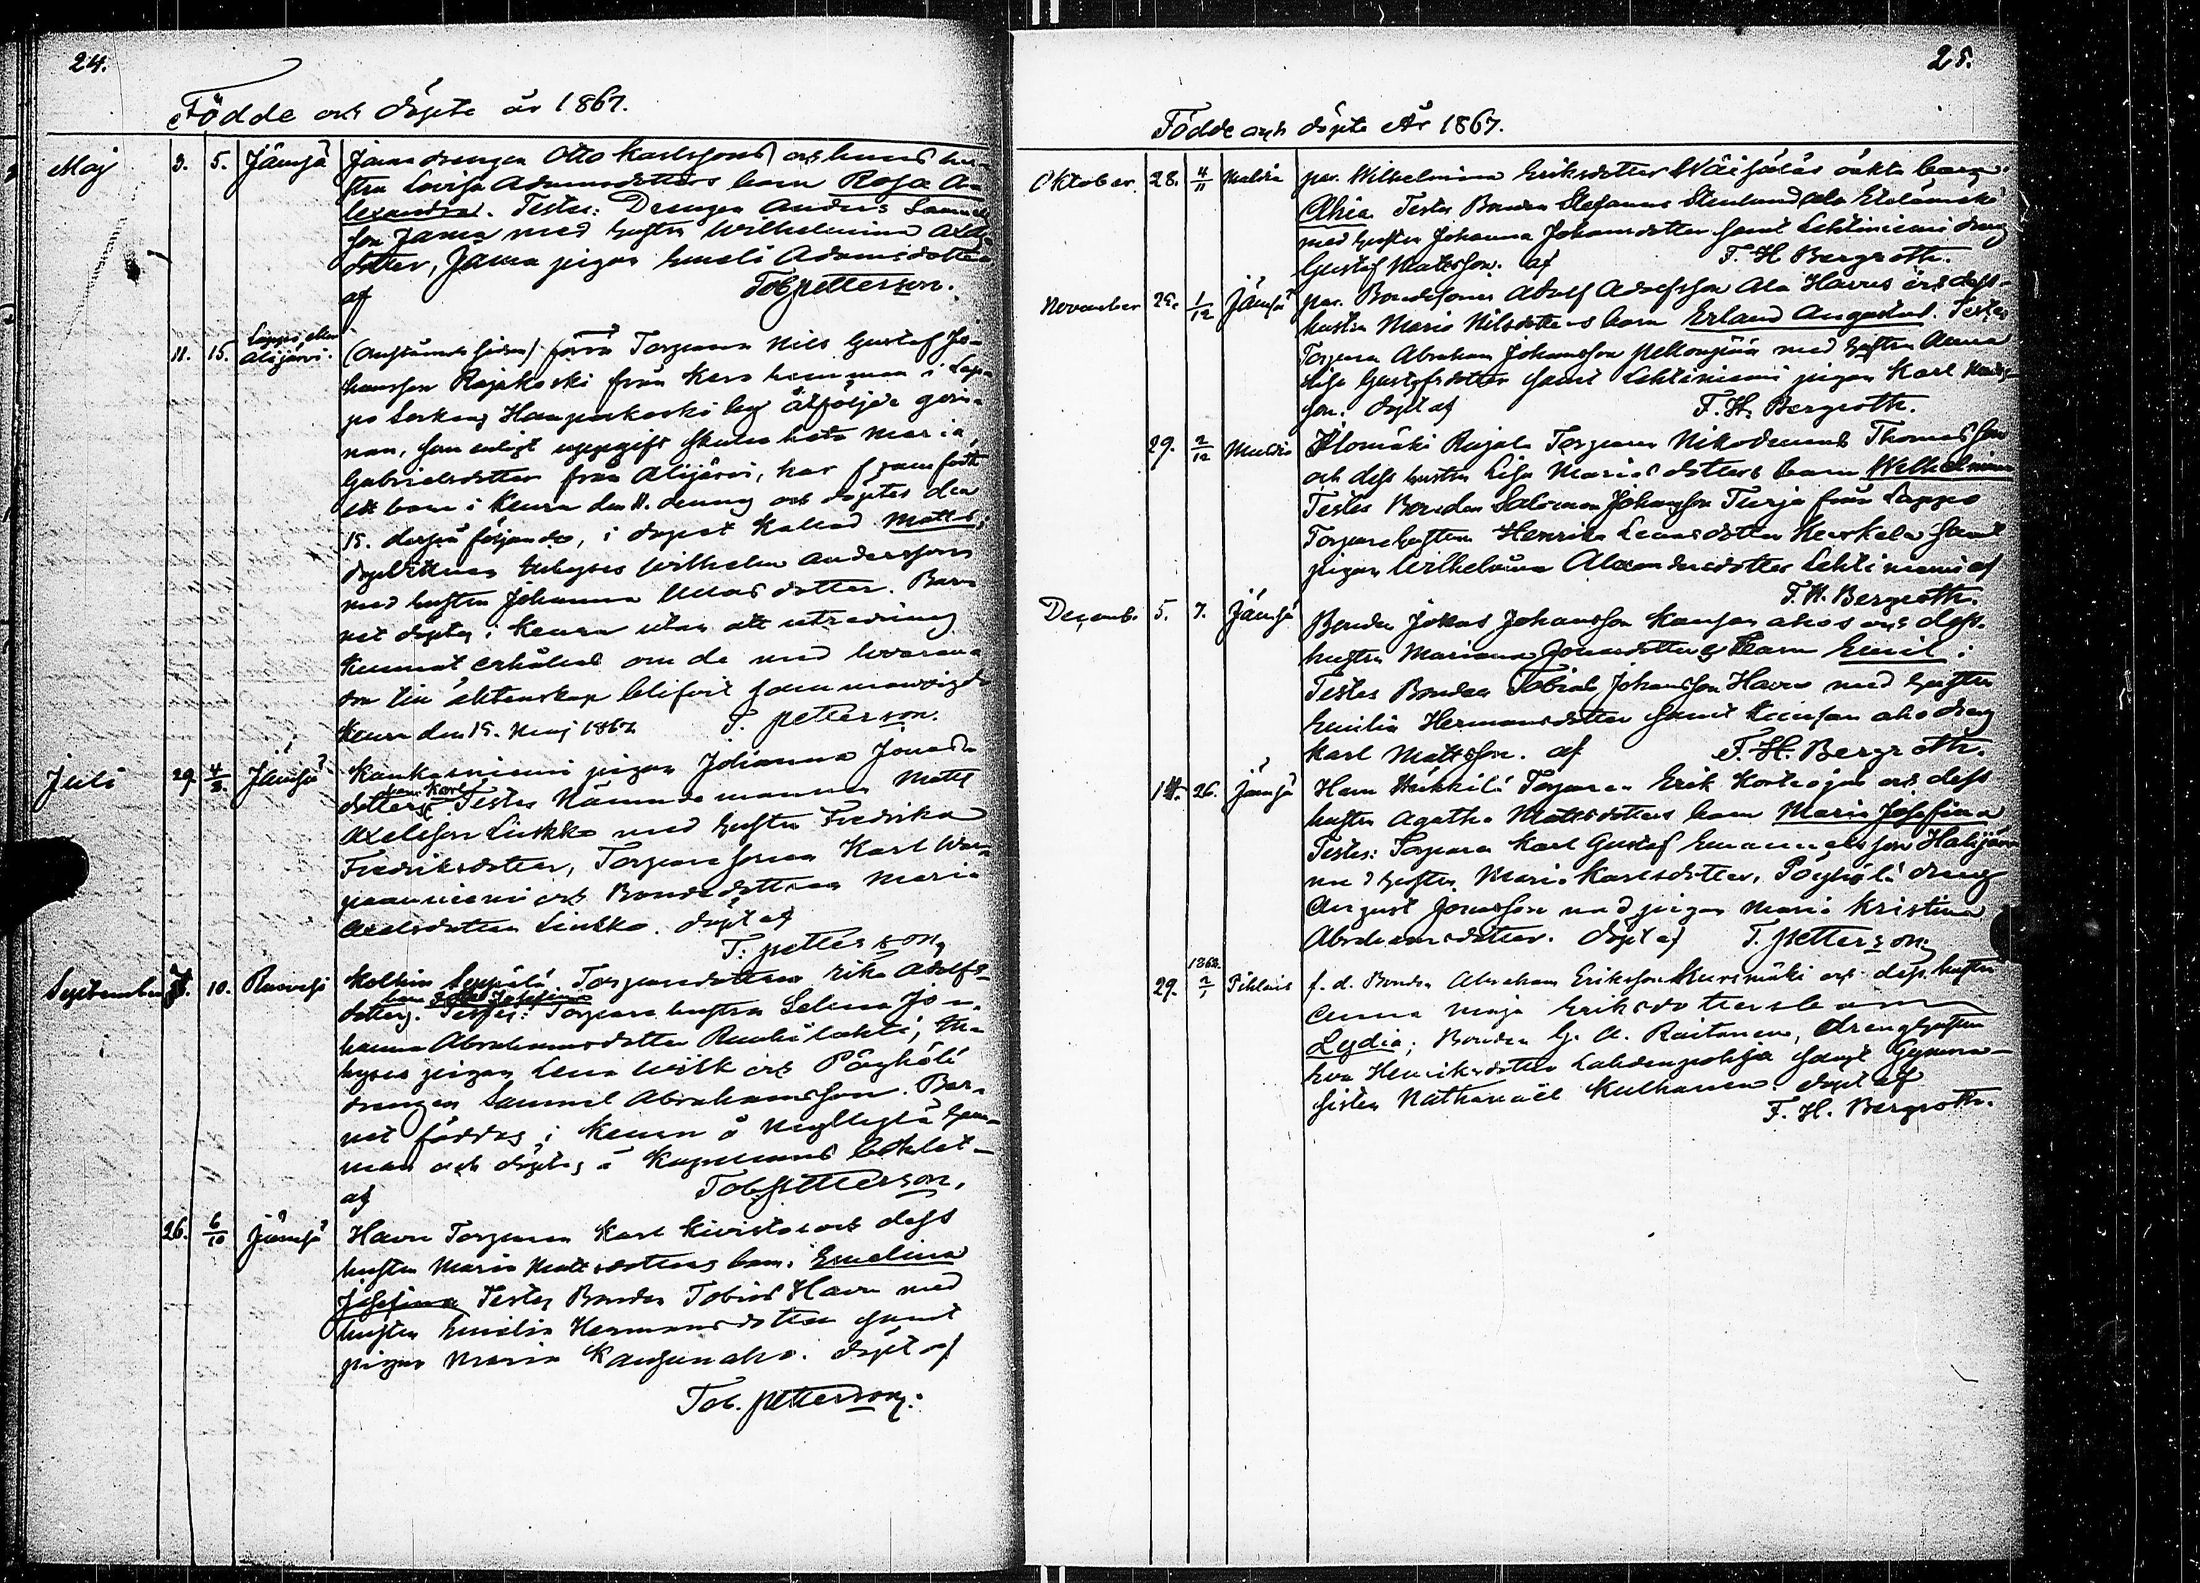 24.
Födde och döpte år 1867.
Maj 3. 5. Jämsä Jama drengen Otto Karlssons och hans hu-
stru Lovisa Adamsdotters barn Rosa A-
lexandra. Testes: Drengen Anders Samuels
son Jama med hustru Wilhelmina Axels-
dotter, Jama pigan Emeli Adamsdotter
af Tob petterson.
11. 15. Lappo eller Alijärvi. förra Torparen Nils Gustaf Jo-
hansson Rajakoski från Kero hemman i Lap-
po Socken, Haapakoski by åtföljde qvin-
nan, som enligt uppgift skulle heta Maria
Gabrielsdotter från Alijärvi, har framfödt
ett barn i Keuru den 11. dennes och döptes den
15. derpå följande, i dopet kallad Matts;
dopvittnen Wilhelm Andersson
med hustru Johanna dotter. Bar-
net döptes i Keuru utan att utredning
kunnat erhållas om de med hvarann
äktenskap blifvit sammanvigda
Keuru den 15. Maj 1867. T. petterson.
Juli 29. 4/8. Jämsä Kaukasniemi pigan Johanna Jonas-
barn Karl
dotters. Testes Nämndemannen Matts
Axelsson Liukko med hustru Fredrika
Fredriksdotter, Torpare sonen Karl
niemi och Bondedottren Maria
Axelsdotter Liukko. döpt af
T. petterson,
September 10. Ruovesi Seppälä Torparedottren Erika Adolfs-
barn Josefina
dotters. Testes: Torpare hustrun Selma Jo-
hanna Abrahamsdotter Ruokilahti, In-
hyses pigan Lena Wilk och Pöyhölä
drengen Samuel Abrahamsson. Bar-
net föddes i Keuru å hem-
man och döptes i Kapellans bostället
af Tob petterson.
26. 6/10 Jämsä Havu Torparen Karl Kivistö och dess
hustru Maria Mattsdotters barn Emelina
Josefina Testes Bonden Tobias Havu med
hustru Emelia Hermansdotter samt
pigan Maria Kansanaho. döpt af
Tob. petterson.
25.
Födde och döpte År 1867.
Oktober. 28. 4/11 Multia per. Wilhelmina Eriksdotter Wäisäläs oäkta barn
Testes Bonden Stefanus Stenlund Ala Etelämäki
med hustru Johanna Johansdotter samt Lehtiniemi dreng
Gustaf Mattsson. af F. H Bergroth.
November 25. 1/12 Jämsä par. Bondesonen Adolf Adolfsson Ala Havus och dess
hustru Maria Nilsdotters barn Erland Augustus. Testes
Torparen Abraham Johansson med hustru Anna
Lisa Gustafsdotter samt Lehtiniemi pigan Karl
son. döpt af F. H. Bergroth.
29. 2/12 Multia Ylomäki Rajala Torparen Nikodemus Thomasson
och dess hustru Lisa Maria dotters barn Wilhelmina
Testes Bonden Salomon Johansson Turja från Lappo
Torparehustrun Henrika dotter samt
pigan Wilhelmina Alexandersdotter Lehtiniemi af
F. H. Bergroth.
Decemb. 5. 7. Jämsä Bonden Jonas Johansson Kansanahos och dess
hustru Mariana Jonasdotters barn Emil:
Testes Bonden Tobias Johansson Havu med hustru
Emilia Hermansdotter samt Kansanaho dreng
Karl Mattsson. af F. H. Bergroth.
26. Jämsä Havu Heikkilä Torparen Erik Kortesojas och dess
hustru Agatha Mattsdotters barn Maria Josefina
Testes: Torparen Karl Gustaf Emanuelsson Halijärvi
med hustru Maria Karlsdotter, Pöyhölä dreng
August Jonasson med pigan Maria Kristina
Abrahamsdotter. döpt af T. petterson
29. 1868. 2/1 Pihlais f. d. Bonden Abraham Eriksson och dess hustru
Anna Maja Eriksdotters barn
Lydia; Bonden G. A. Raitanen, drenghustrun
Eva Henriksdotter Lahdenpohja samt Gymna-
sisten Nathanaël Kulhanen. döpt af
F. H. Bergroth.